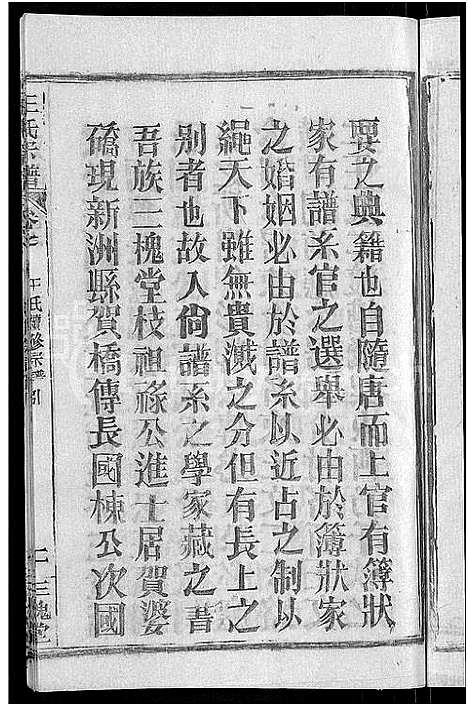 要之典籍也自隨唐而上官有簿狀
家有譜系官之選舉必由於簿狀家
之婚姻必由於譜系以近占之制以
繩天下雖無貴溅之分但有長上之
别者也故人尙譜系之學家藏之書
吾族三槐堂枝祖祿公進士居賀婆
礄現新洲縣賀橋傳長國棟公次國
王氏宗譜
王氏續修宗譜引
三槐堂